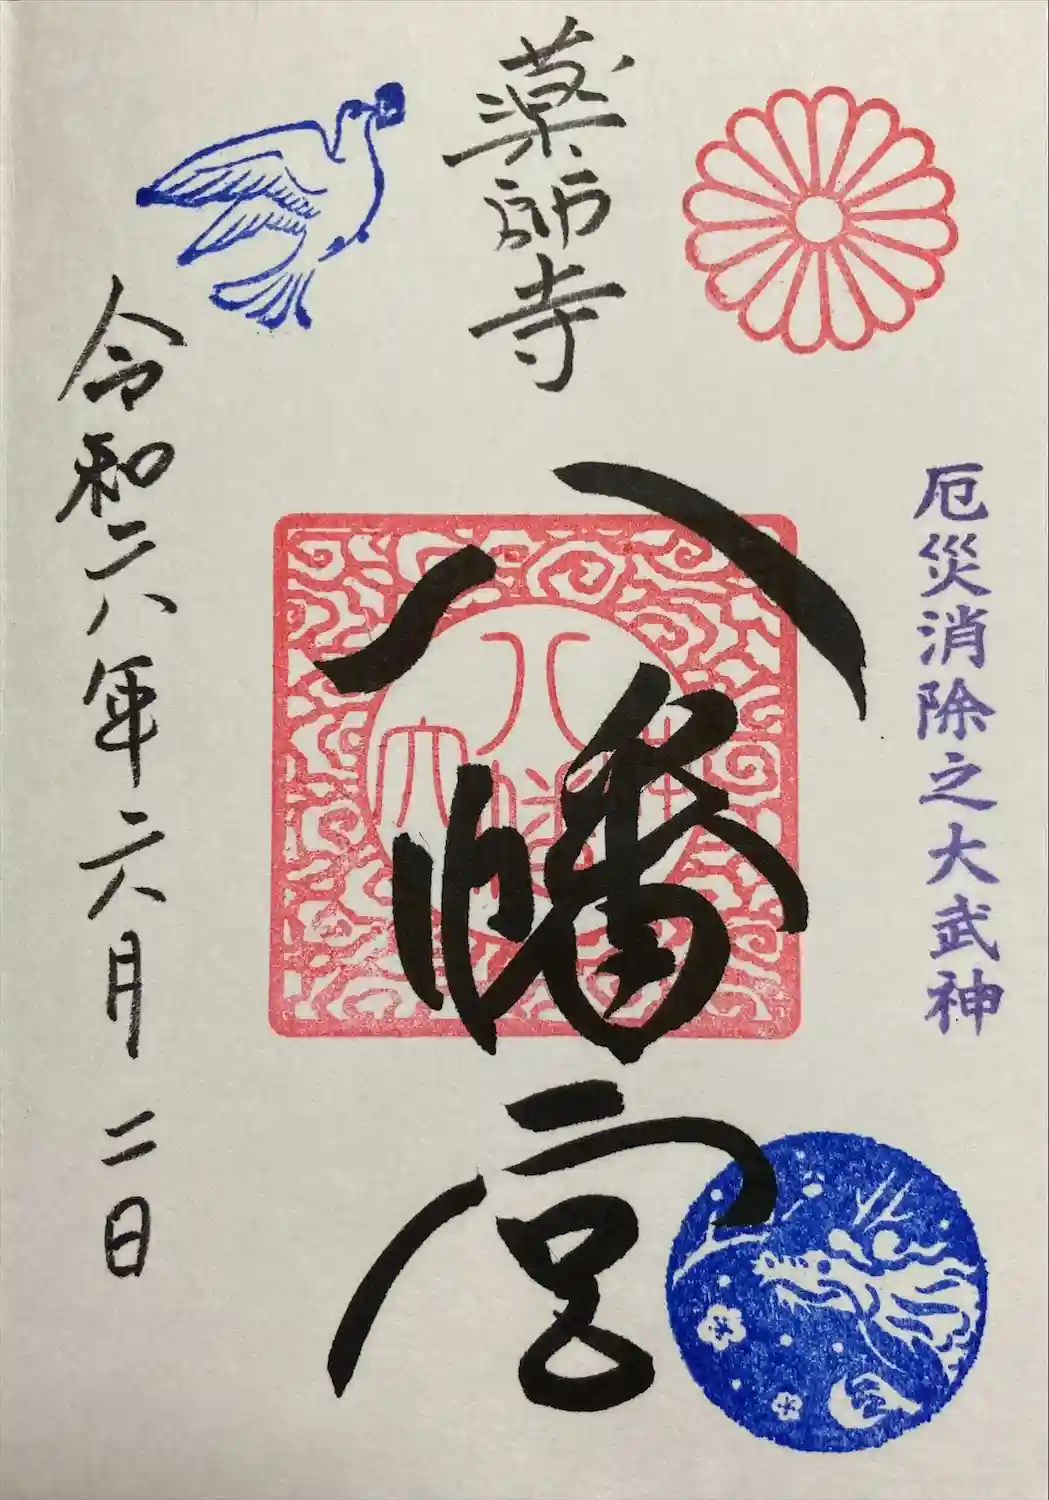 厄災消除之大武神
薬師寺
八幡宮
令和六年六月二日